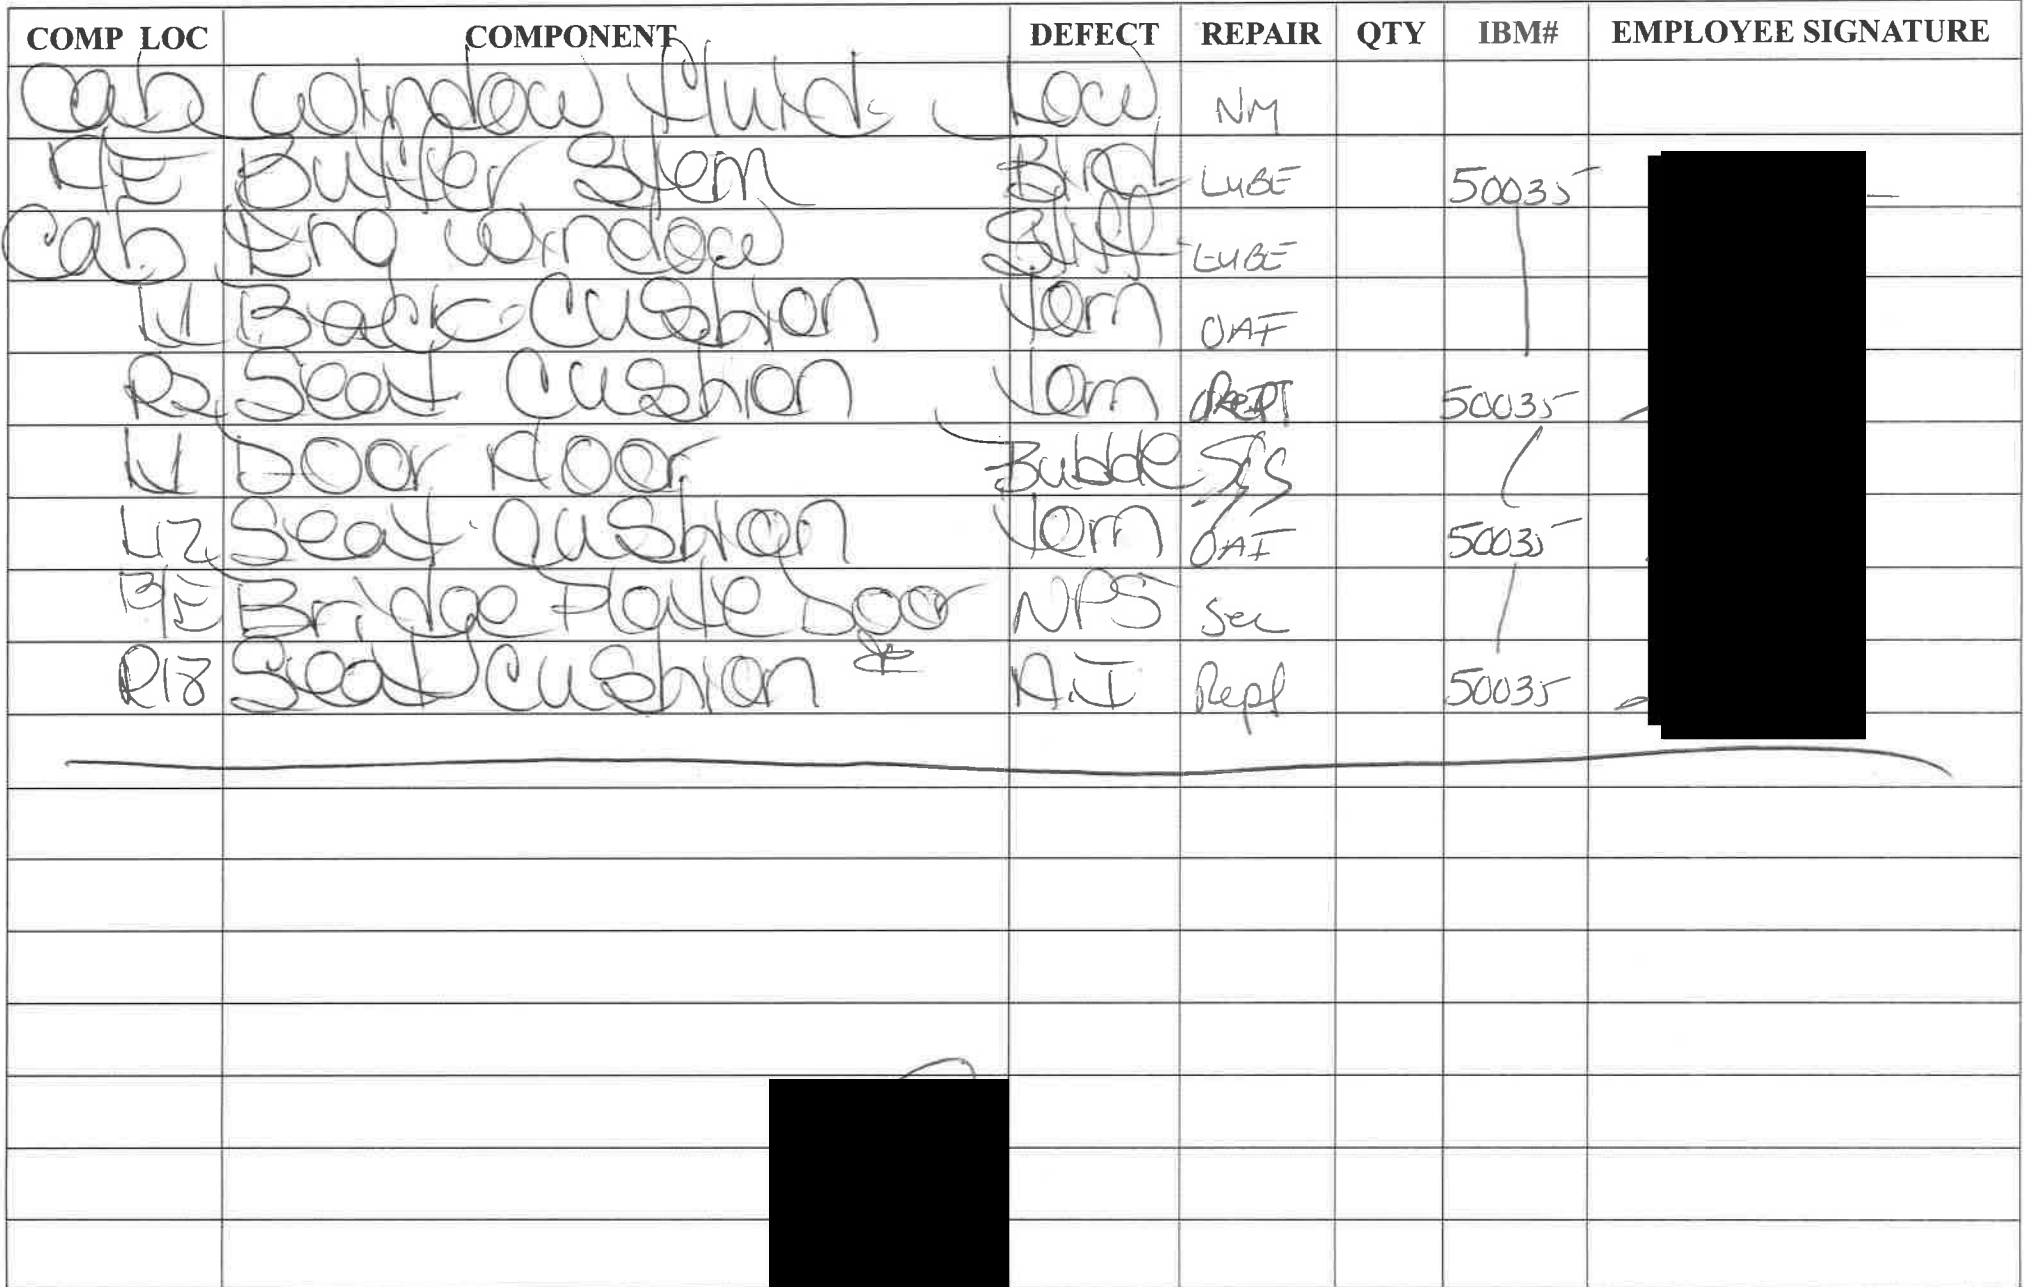 COMP LOC COMPONENT DEFECT REPAIR QTY IBM# EMPLOYEE SIGNATURE
Cab Window Fluid Low NM
F/E Buffer Stem Bind LUBE 50035
Cab Eng Window Stiff LUBE
Back Cushion Torn OAI
R2 Seat Cushion Torn 50035
Door Floor Bubble
L12 Seat Cushion Torn OAI 50035
B/E Bridge Plate Door NPS Sec
R18 Seat Cushion Repl 50035